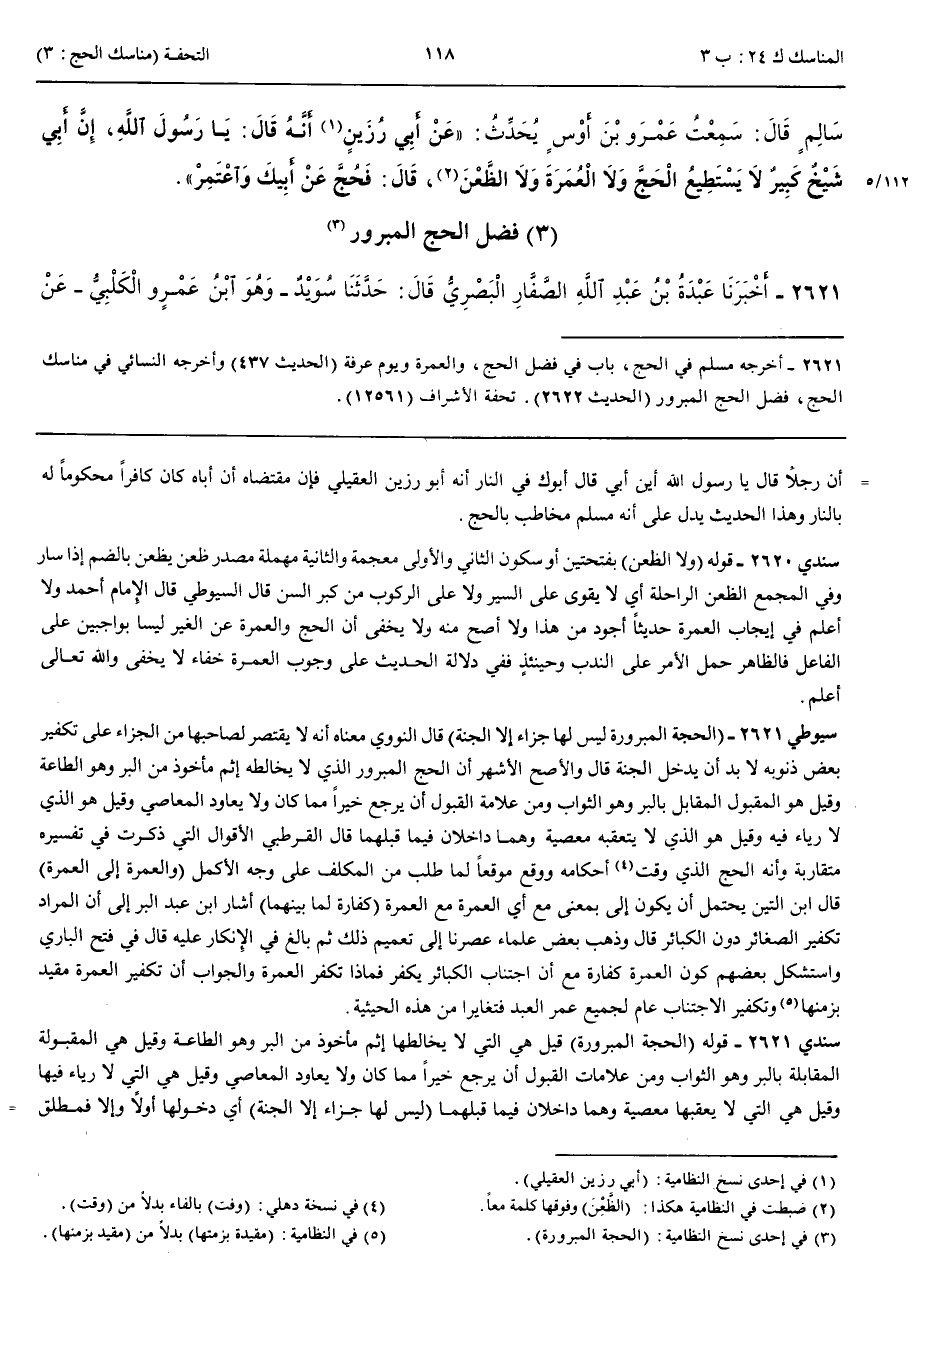 المناسك ك ٢٤: ب ٣ ١١٨ التحفة (مناسك الحج: ٣)
سَالِمٍ قَالَ: سَمِعْتُ عَمْرَو بْنَ أَوْسٍ يُحَدِّثُ: «عَنْ أَبِي رُزَيْنٍ(١) أَنَّهُ قَالَ: يَا رَسُولَ اللَّهِ، إِنَّ أَبِي
٥/١١٢ شَيْخٌ كَبِيرٌ لَا يَسْتَطِيعُ الْحَجَّ وَلَا الْعُمَرَةَ وَلَا الظَّعْنَ(٢)، قَالَ: فَحُجَّ عَنْ أَبِيكَ وَاعْتَمِرْ».
(٣) فضل الحج المبرور(٣)
٢٦٢١ - أَخْبَرَنَا عَبْدَةُ بْنُ عَبْدِ اللَّهِ الصَّفَّارِ الْبَصْرِيُّ قَالَ: حَدَّثَنَا سُوَيْدٌ - وَهُوَ ابْنُ عَمْرِو الْكَلْبِيُّ - عَنْ
٢٦٢١ - أخرجه مسلم في الحج، باب في فضل الحج، والعمرة ويوم عرفة (الحديث ٤٣٧) وأخرجه النسائي في مناسك
الحج، فضل الحج المبرور (الحديث ٢٦٢٢). تحفة الأشراف (١٢٥٦١).
= أن رجلاً قال يا رسول الله أين أبي قال أبوك في النار أنه أبو رزين العقيلي فإن مقتضاه أن أباه كان كافراً محكوماً له
بالنار وهذا الحديث يدل على أنه مسلم مخاطب بالحج.
سندي ٢٦٢٠ - قوله (ولا الظعن) بفتحتين أو سكون الثاني والأولى معجمة والثانية مهملة مصدر ظعن يظعن بالضم إذا سار
وفي المجمع الظعن الراحلة أي لا يقوى على السير ولا على الركوب من كبر السن قال السيوطي قال الإمام أحمد ولا
أعلم في إيجاب العمرة حديثاً أجود من هذا ولا أصح منه ولا يخفى أن الحج والعمرة عن الغير ليسا بواجبين على
الفاعل فالظاهر حمل الأمر على الندب وحينئذٍ ففي دلالة الحديث على وجوب العمرة خفاء لا يخفى والله تعالى
أعلم.
سيوطي ٢٦٢١ - (الحجة المبرورة ليس لها جزاء إلا الجنة) قال النووي معناه أنه لا يقتصر لصاحبها من الجزاء على تكفير
بعض ذنوبه لا بد أن يدخل الجنة قال والأصح الأشهر أن الحج المبرور الذي لا يخالطه إثم مأخوذ من البر وهو الطاعة
وقيل هو المقبول المقابل بالبر وهو الثواب ومن علامة القبول أن يرجع خيراً مما كان ولا يعاود المعاصي وقيل هو الذي
لا رياء فيه وقيل هو الذي لا يتعقبه معصية وهما داخلان فيما قبلهما قال القرطبي الأقوال التي ذكرت في تفسيره
متقاربة وأنه الحج الذي وقت(٤) أحكامه ووقع موقعاً لما طلب من المكلف على وجه الأكمل (والعمرة إلى العمرة)
قال ابن التين يحتمل أن يكون إلى بمعنى مع أي العمرة مع العمرة (كفارة لما بينهما) أشار ابن عبد البر إلى أن المراد
تكفير الصغائر دون الكبائر قال وذهب بعض علماء عصرنا إلى تعميم ذلك ثم بالغ في الإنكار عليه قال في فتح الباري
واستشكل بعضهم كون العمرة كفارة مع أن اجتناب الكبائر يكفر فماذا تكفر العمرة والجواب أن تكفير العمرة مقيد
بزمنها(٥) وتكفير الاجتناب عام لجميع عمر العبد فتغايرا من هذه الحيثية.
سندي ٢٦٢١ - قوله (الحجة المبرورة) قيل هي التي لا يخالطها إثم مأخوذ من البر وهو الطاعة وقيل هي المقبولة
المقابلة بالبر وهو الثواب ومن علامات القبول أن يرجع خيراً مما كان ولا يعاود المعاصي وقيل هي التي لا رياء فيها
وقيل هي التي لا يعقبها معصية وهما داخلان فيما قبلهما (ليس لها جزاء إلا الجنة) أي دخولها أولاً وإلا فمطلق =
(١) في إحدى نسخ النظامية: (أبي رزين العقيلي).
(٢) ضبطت في النظامية هكذا: (الظَّعْنَ) وفوقها كلمة معاً.
(٣) في إحدى نسخ النظامية: (الحجة المبرورة).
(٤) في نسخة دهلي: (وفت) بالفاء بدلاً من (وقت).
(٥) في النظامية: (مقيدة بزمتها) بدلاً من (مقيد بزمنها).